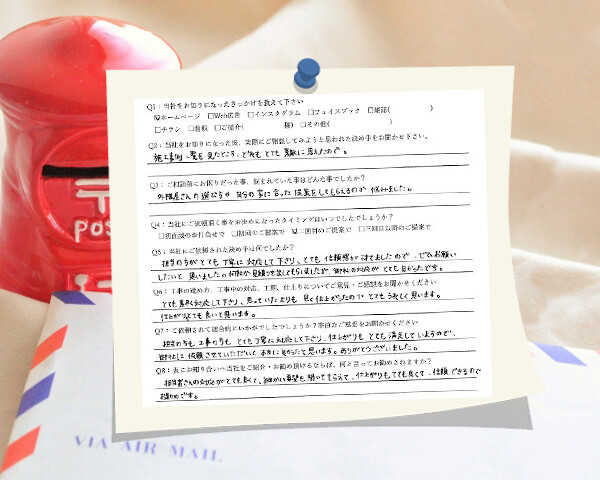 Q1：当社をお知りになったきっかけを教えて下さい
☑ホームページ □Web広告 □インスタグラム □フェイスブック □雑誌( )
□チラシ □看板 □ご紹介( 様) □その他( )
Q2：当社をお知りになった後、実際にご相談してみようと思われた決め手をお聞かせ下さい。
施工事例一覧を見たところ、どれもとても素敵に思えたので。
Q3：ご相談前にお困りだった事、悩まれていた事はどんな事でしたか？
外構屋さんの選び方や自分の家に合った提案をしてもらえるのか悩みました。
Q4：当社にご依頼頂く事をお決めになったタイミングはいつでしたでしょうか？
□初面談のお打合せで □初回のご提案で ☑二回目のご提案で □三回目以降のご提案で
Q5：当社にご依頼された決め手は何でしたか？
担当の方がとても丁寧に対応して下さり、とても信頼感が持てましたので、ぜひお願い
したいと思いました。何社か見積りを出してもらいましたが、御社の対応がとても良かったです。
Q6：工事の進め方、工事中の対応、工期、仕上りについてご意見・ご感想をお聞かせください
とても素早く対応して下さり、思っていたよりも早く仕上がったのでとてもうれしく思います。
仕上がりもとても良いと思います。
Q7：ご依頼されて総合的にいかがでしたでしょうか？率直なご感想をお聞かせください
担当の方も工事の方もとても丁寧に対応して下さり、仕上がりもとても満足しているので、
御社に依頼させていただいて本当に良かったと思います。ありがとうございました。
Q8：仮にお知り合いへ当社をご紹介・お勧め頂けるならば、何と言ってお勧めされますか？
担当者さんの対応がとても良くて、細かい要望も聞いてもらえて、仕上がりもとても良くて、信頼できるので
お勧めです。
POS
VIA AIR MAIL